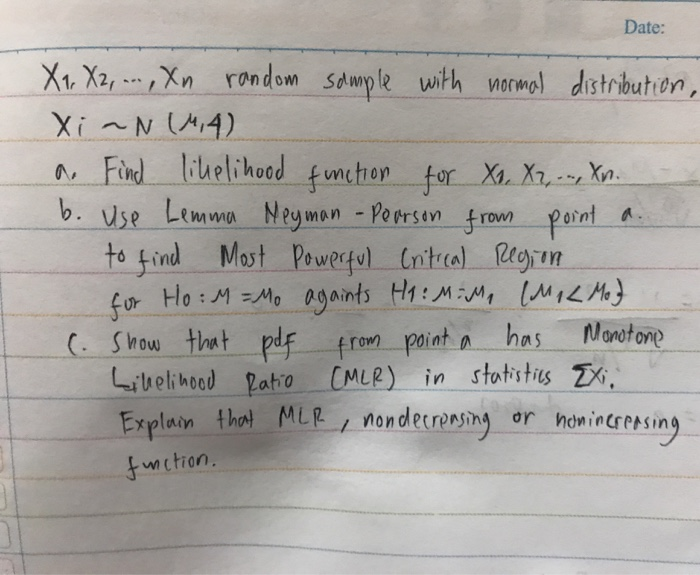 Date:
X1, X2, ..., Xn random sample with normal distribution,
Xi ~ N (μ,4)
a. Find likelihood function for X1, X2, ..., Xn.
b. Use Lemma Neyman - Pearson from point a.
to find Most Powerful Critical Region
for H0 : μ = μ0 againts H1 : μ = μ1 {μ1 < μ0}
c. Show that pdf from point a has Monotone
Likelihood Ratio (MLR) in statistics ΣXi.
Explain that MLR, nondecreasing or nonincreasing
function.